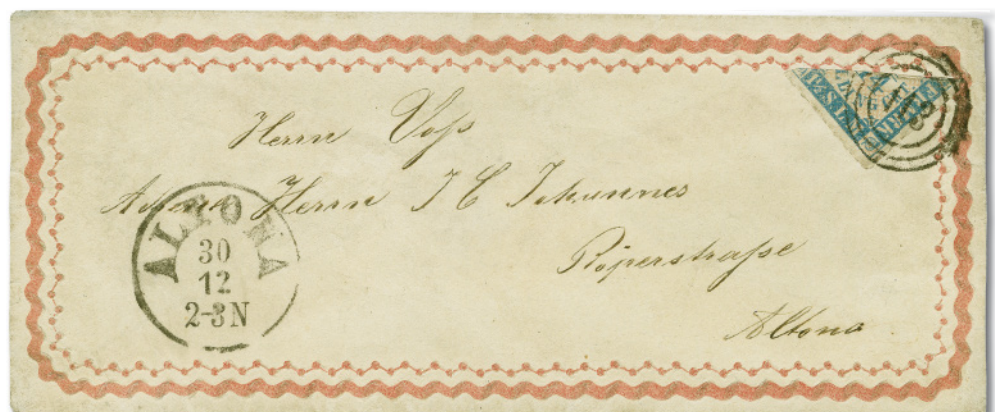 Herrn Voß
Herrn J C Johannes
Röperstraße
Altona
ALTONA
30
12
2-3N